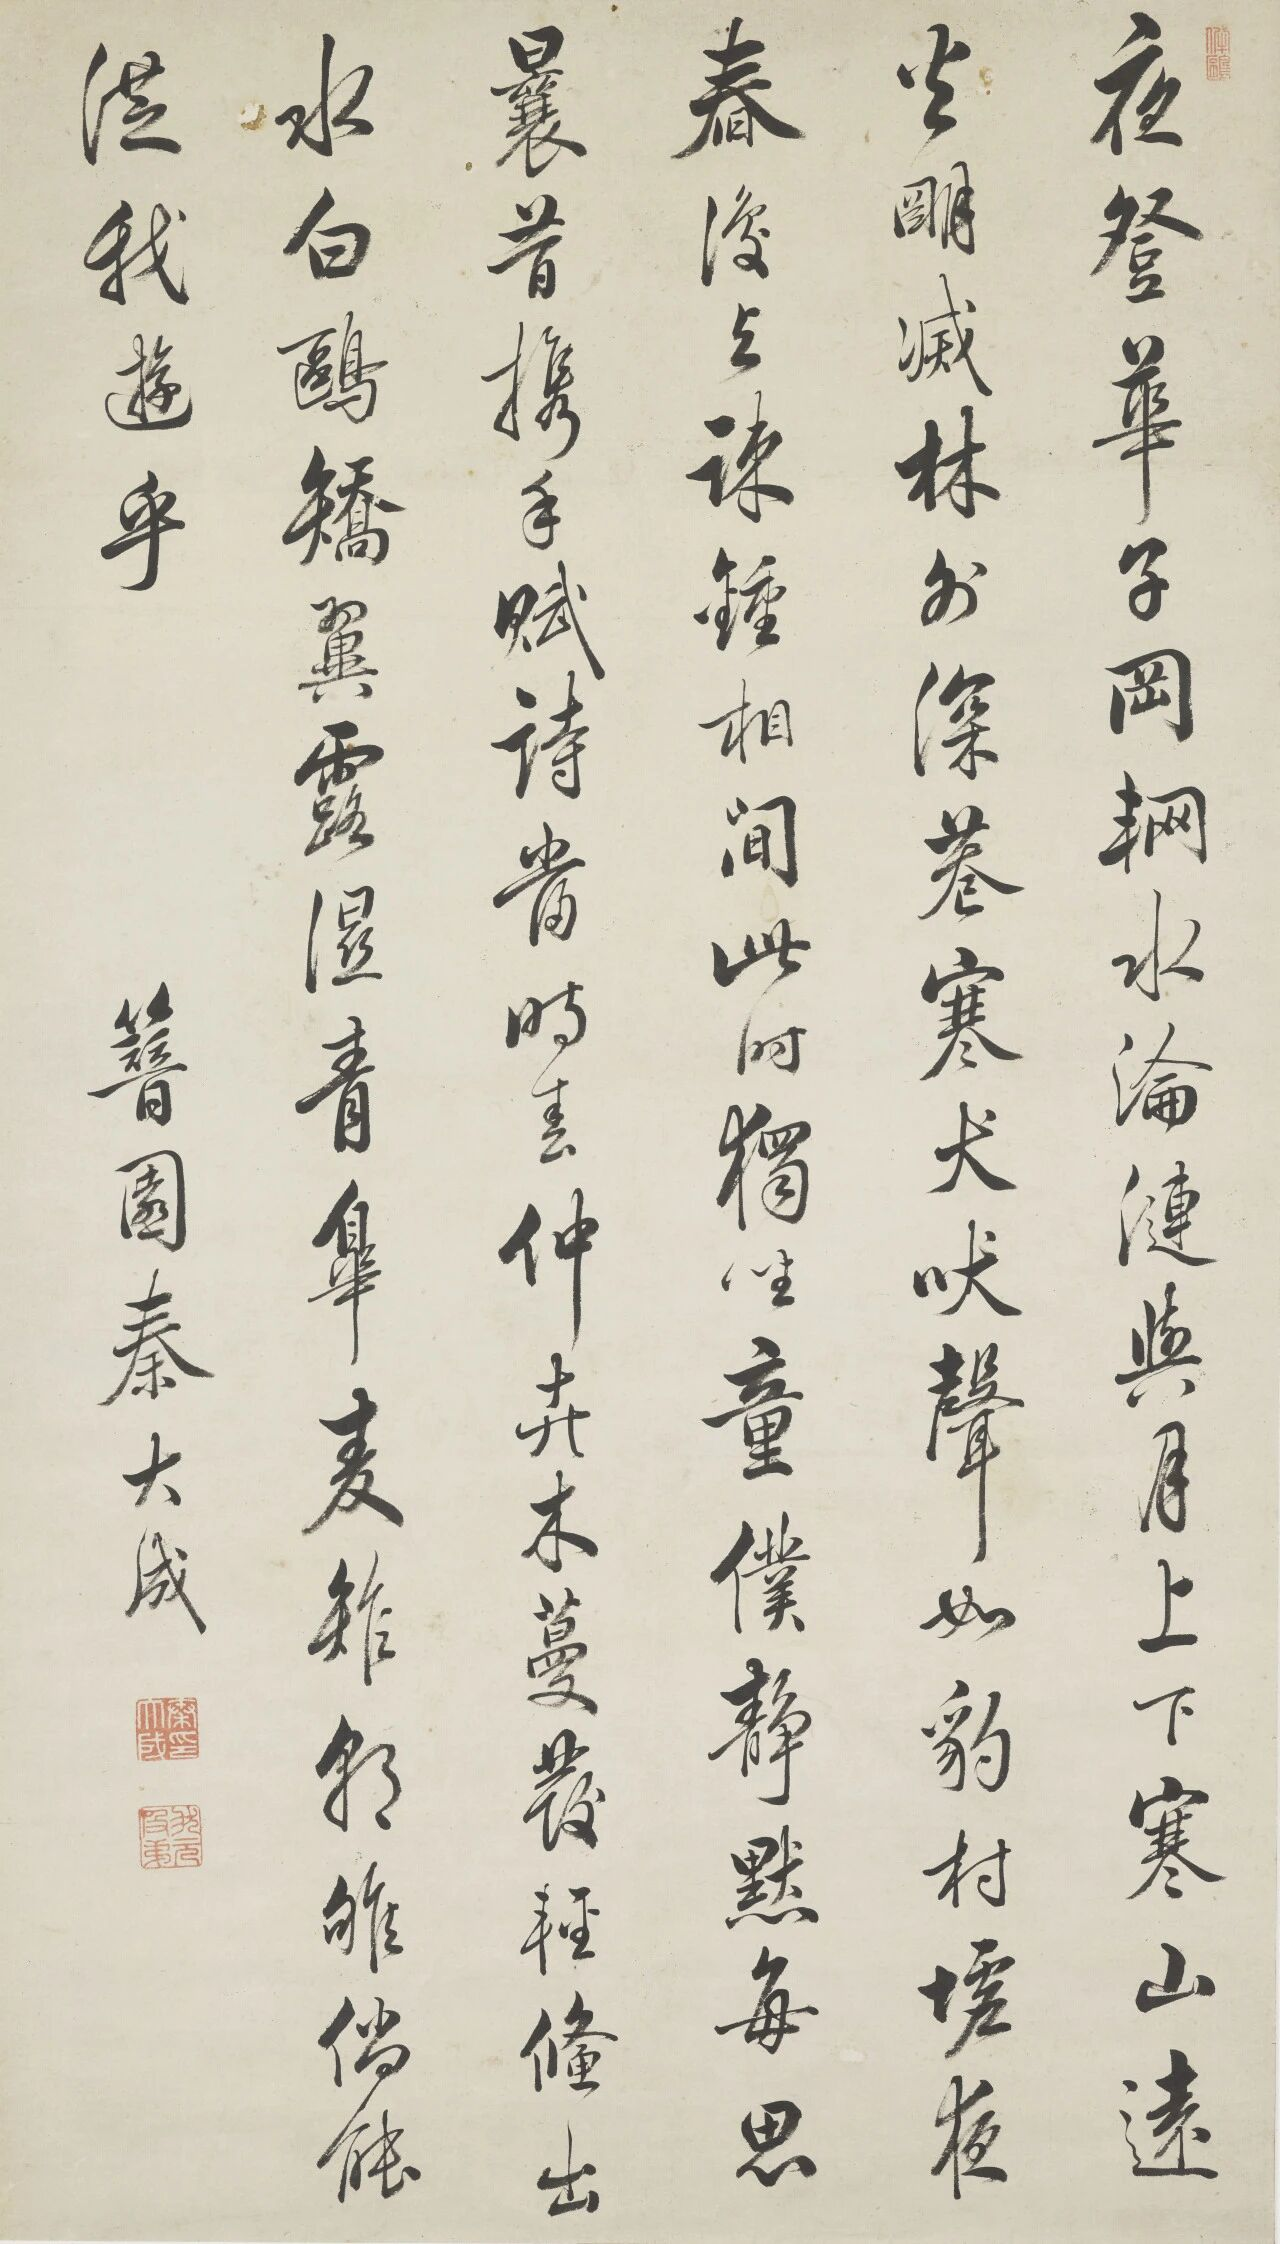 夜登華子岡輞水淪漣與月上下寒山遠
火明滅林外深巷寒犬吠聲如豹村墟夜
舂復与疎鍾相間此时獨坐童僕靜默每思
曩昔携手賦詩當時春仲卉木蔓發輕鯈出
水白鷗矯翼露濕青皋麦雉朝雊倘能
從我遊乎
簪園秦大成
秦印大成